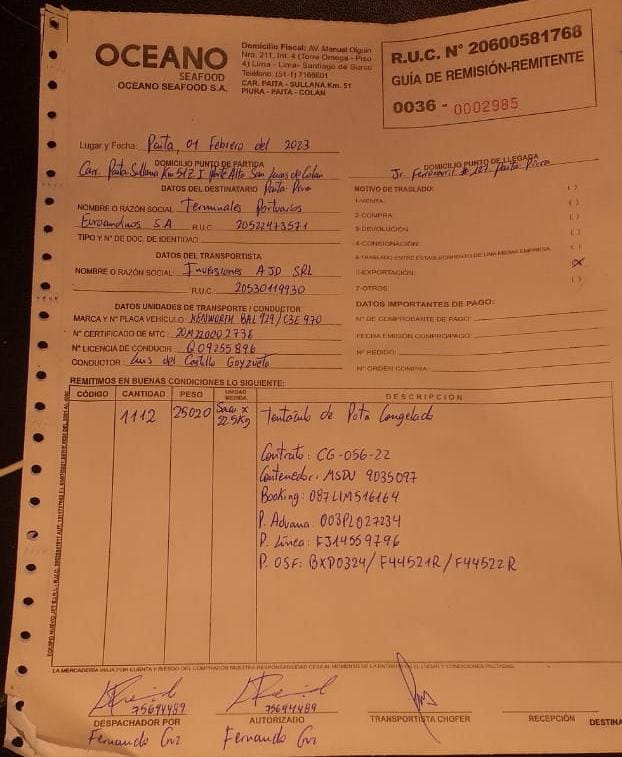 OCEANO
SEAFOOD
OCEANO SEAFOOD S.A.
Domicilio Fiscal: AV. Manuel Olguin
Nro. 211, Int. 4 (Torre Omega - Piso
4) Lima - Lima - Santiago de Surco
Teléfono: (51-1) 7166601
CAR. PAITA - SULLANA Km. 51
PIURA - PAITA - COLAN
R.U.C. N° 20600581768
GUÍA DE REMISIÓN-REMITENTE
0036 - 0002985
Lugar y Fecha: Paita, 01 Febrero del 2023
DOMICILIO PUNTO DE PARTIDA
Carr. Paita Sullana Km 51 Parte Alta San Lucas de Colan
Paita Piura
DOMICILIO PUNTO DE LLEGADA
Jr. Ferrocarril # 127 Paita Piura
DATOS DEL DESTINATARIO
NOMBRE O RAZÓN SOCIAL Terminales Portuarios
Euroandinos S A R.U.C 20522473571
TIPO Y N° DE DOC. DE IDENTIDAD:
MOTIVO DE TRASLADO:
1-VENTA: ( )
2-COMPRA ( )
3-DEVOLUCIÓN ( )
4-CONSIGNACIÓN: ( )
5-TRASLADO ENTRE ESTABLECIMIENTO DE UNA MISMA EMPRESA. ( )
6-EXPORTACIÓN: X
7-OTROS: ( )
DATOS DEL TRANSPORTISTA
NOMBRE O RAZÓN SOCIAL: Inversiones AJD SRL
R.U.C. 20530119930
DATOS UNIDADES DE TRANSPORTE / CONDUCTOR
MARCA Y N° PLACA VEHÍCULO: KENWORTH BAL 929 / C3E 970
N° CERTIFICADO DE MTC:
N° LICENCIA DE CONDUCIR Q09255896
CONDUCTOR: Luis del Castillo Goyzueta
DATOS IMPORTANTES DE PAGO:
N° DE COMPROBANTE DE PAGO:
FECHA EMISIÓN COMPROBPAGO:
N° PEDIDO:
N° ORDEN COMPRA:
REMITIMOS EN BUENAS CONDICIONES LO SIGUIENTE:
CÓDIGO CANTIDAD PESO UNIDAD MEDIDA DESCRIPCION
1112 25020 Saco x 22.5Kg Tentáculo de Pota Congelado
Contrato: CG-056-22
Contenedor: MSDU 9035097
Booking: 087LIM516164
P. Aduana: 003PL027234
P. Línea: FJ14559796
P. OSF: BXP0324/ F44521R/F44522R
DESPACHADOR POR
75694489
Fernando Cruz
AUTORIZADO
75694489
Fernando Cruz
TRANSPORTISTA CHOFER
RECEPCIÓN
DESTINA